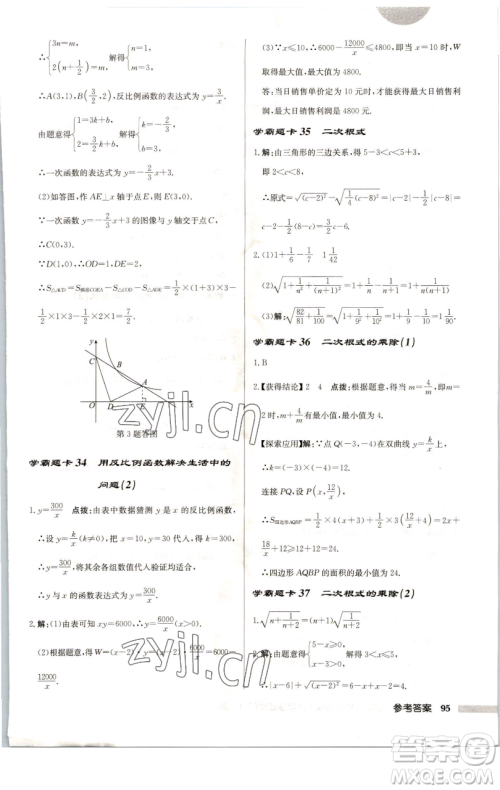 ∴{3n=m, 2(n+1/2)=m, 解得{n=1, m=3.
∴A(3,1),B(3/2,2),反比例函数的表达式为 y=3/x.
由题意得{1=3k+b, 2=3/2k+b, 解得{k=-2/3, b=3.
∴一次函数的表达式为 y=-2/3x+3.
(2)如答图,作 AE⊥x 轴于点 E.
∵一次函数 y=-2/3x+3 的图像与 y 轴交于点 C,
∴C(0,3).
∵D(1,0),∴OD=1,DE=2,
1/2×1×3-1/2×2×1=2.
y
C
B
A
O
D
E
x
第 3 题答图
学霸题卡 34 用反比例函数解决生活中的
问题(2)
1.y=300/x 点拨:由表中数据猜测 y 是 x 的反比例函数,
∴设 y=k/x(k≠0),把 x=10,y=30 代入,得 k=300,
∴y=300/x,将其余各组数值代入验证均适合,
∴y 与 x 的函数关系式为 y=300/x.
2.解:(1)由表可知 xy=6000,∴y=6000/x(x>0).
(2)根据题意,得 W=(x-2)y=(x-2)·6000/x=6000
-12000/x.
(3)∵x≤10,∴6000-12000/x≤4800,即当 x=10 时,W
取得最大值,最大值为 4800.
答:当日销售单价定为 10 元时,才能获得最大日销售利
润,最大日销售利润是 4800 元.
学霸题卡 35 二次根式
1.解:由三角形的三边关系,得 5-3<c<5+3,
即 2<c<8.
∴原式=√(c-2)²-√1/4(c-8)²=|c-2|-1/2|c-8|=
c-2-1/2(8-c)=3/2c-6.
2.(1)1 1/6 1/6-1/7 1 1/42
(3)解:√(82/81+1/100)=√(1+1/81+1/100)=1+1/9-1/10=1 1/90.
学霸题卡 36 二次根式的乘除(1)
1.B
2.【获得结论】2 4 点拨:根据题意,得当 m=4/m,即 m=
2 时,m+4/m 有最小值,最小值为 4.
【探索应用】解:∵点 Q(-3,-4)在双曲线 y=k/x 上,
∴k=12.
连接 PQ,设 P(x,12/x),
18/x+12≥12+12=24,
∴四边形 AQBP 的面积的最小值为 24.
学霸题卡 37 二次根式的乘除(2)
2.解:由题意,得{8-x≥0, x-6>0,
解得 6<x≤8.
参考答案 95
zyjl.cn
zyjl.cn
答案圈
MXQE.COM